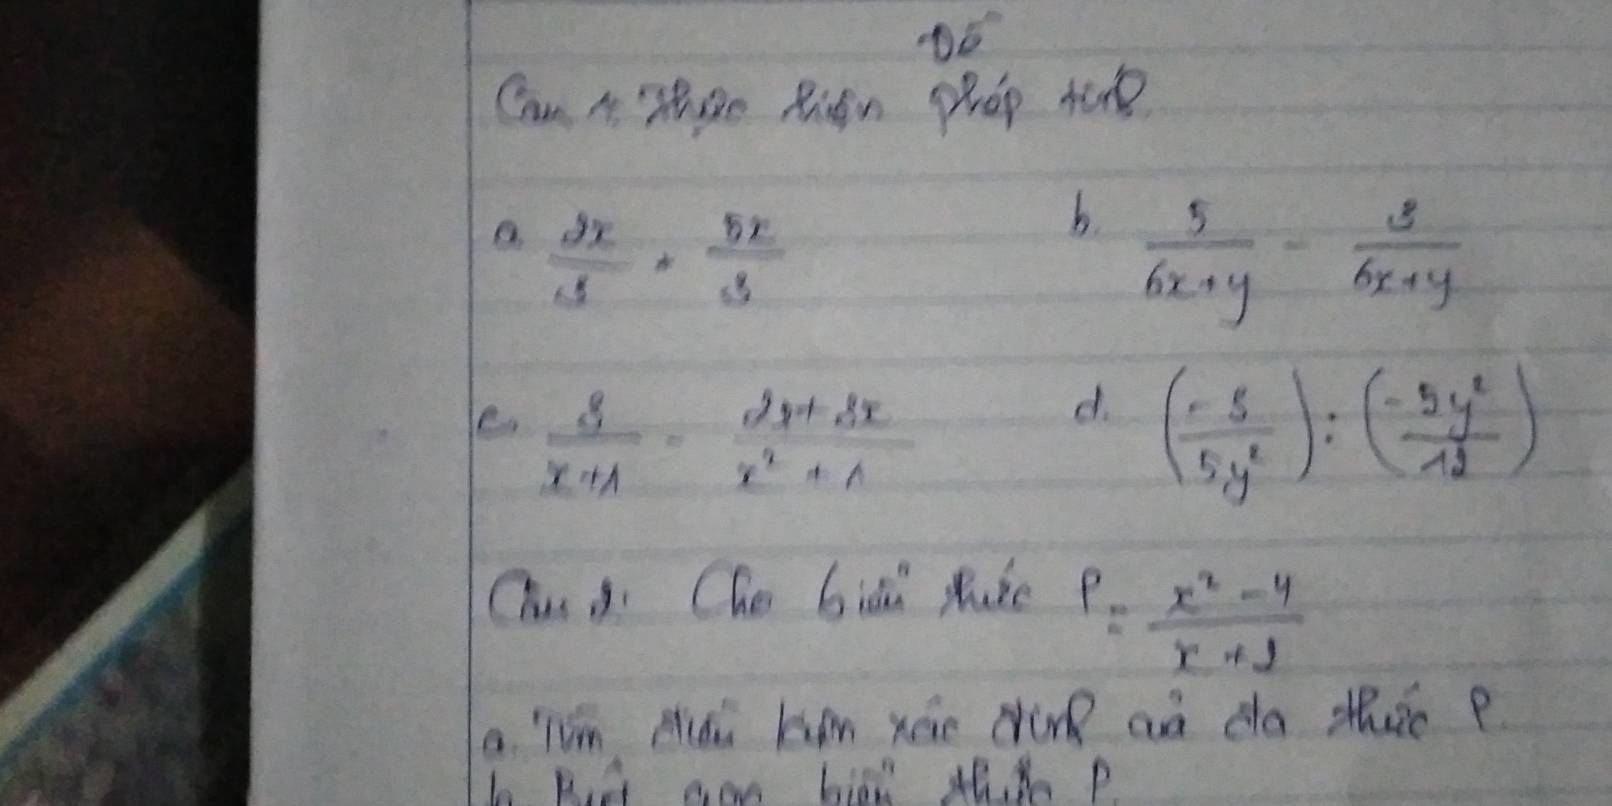 Đề
Câu 1: Thực hiện phép tính
a. 2x/3 + 5x/3 b. 5/(6x+y) - 3/(6x+y)
c. 3/(x+1) - (2x+3x)/(x² + 1) d. (-3/(5y²)) : (-9y²/12)
Câu 2: Cho biểu thức P = (x² - 4)/(x + 2)
a. Tìm điều kiện xác định của đa thức P.
b. Rút gọn biểu thức P.